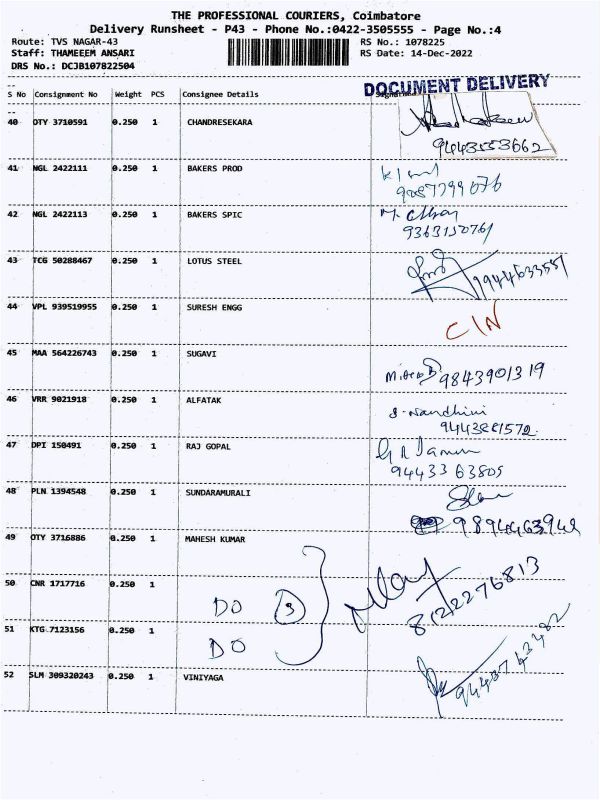 THE PROFESSIONAL COURIERS, Coimbatore
Delivery Runsheet - P43 - Phone No.:0422-3505555 - Page No.:4
Route: TVS NAGAR-43 RS No.: 1078225
Staff: THAMEEEM ANSARI RS Date: 14-Dec-2022
DRS No.: DCJB107822504
DOCUMENT DELIVERY
S No Consignment No Weight PCS Consignee Details
40 OTY 3710591 0.250 1 CHANDRESEKARA
9443553662
41 NGL 2422111 0.250 1 BAKERS PROD
9087799076
42 NGL 2422113 0.250 1 BAKERS SPIC
9363150761
43 TCG 50288467 0.250 1 LOTUS STEEL
44 VPL 939519955 0.250 1 SURESH ENGG C/N
45 MAA 564226743 0.250 1 SUGAVI
9843901319
46 VRR 9021918 0.250 1 ALFATAK
S. Nandhini
47 DPI 150491 0.250 1 RAJ GOPAL
9443363805
48 PLN 1394548 0.250 1 SUNDARAMURALI
49 OTY 3716886 0.250 1 MAHESH KUMAR
50 CNR 1717716 0.250 1 DO 3
8122276813
51 KTG 7123156 0.250 1 DO
52 SLM 309320243 0.250 1 VINIYAGA